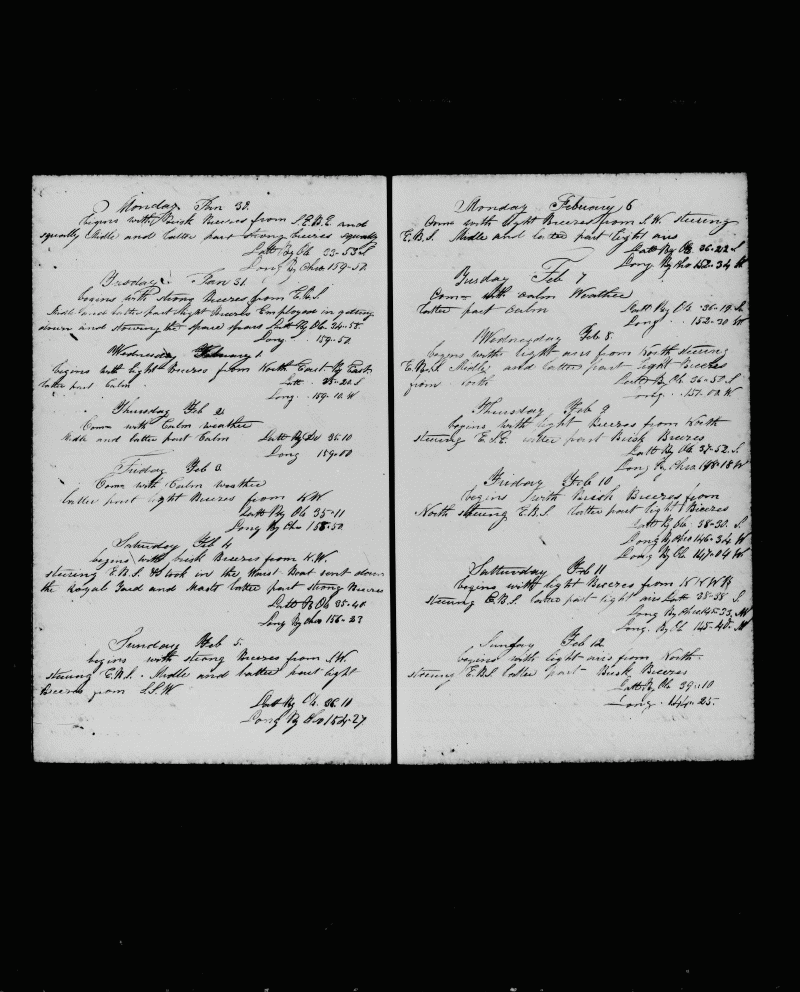 Monday Jan 30.
begins with Brisk Breezes from S.E.B.E and
squally Midle and latter part strong breezes squally
Latt By Ob 33-53 S
Long By Chro 159-50
Tusday Jan 31.
begins with strong Breezes from E.B.S
Midle and latter part light Breezes Employed in getting
down and stowing the spare spars Latt By Ob 34-58
Long . 159-50
Wednesday February 1
begins with light Breezes from North East By East
latter part Calm Latt . 35-22 S
Long . 159-10 W
Thursday Feb 2
Com with Calm weather
Midle and latter part Calm Latt By 35-10
Long 159-00
Friday Feb 3
Com with Calm weather
latter part light Breezes from NW
Latt By Ob 35-11
Long By Chro 158-50
Saturday Feb 4
begins with brisk Breezes from N.W.
steering E.B.S. took in the Waist Boat sent down
the Royal Yard and Masts latter part strong Breezes
Latt By Ob 35-40
Long By Chro 156-23
Sunday Feb 5.
begins with strong Breezes from SW.
steering E.B.S. Midle and latter part light
Breezes from S.S.W
Latt By Ob. 36.10
Long By Chro 154-27
Monday February 6
Com with light Breezes from S.W steering
E.B.S. Midle and latter part light airs
Latt By Ob 36-22 S
Long By Chro 152-34 W
Tusday Feb 7
Com with calm Weather
latter part Calm Latt By Ob . 36-19 S
Long . . 152-30 W
Wednesday Feb 8.
begins with light airs from North steering
E.B.S. Midle and latter part light Breezes
from North Latt By Ob 36-50 S
Long . . 151-02 W
Thursday Feb 9
begins with light Breezes from North
steering E.S.E. latter part Brisk Breezes
Latt By Ob 37-52 S.
Long By Chro 148-18 W
Friday Feb 10
begins with Brisk Breezes from
North steering E.B.S. latter part light Breezes
Latt By Ob . 38-30 S
Long By Chro 146-34 W
Long By Ob. 147-04 W
Satturday Feb 11
begins with light Breezes from N N W
steering E.B.S. latter part light airs Latt 38-58 S
Long By Chro 145-33. W
Long. By Ob 145-48. W
Sunday Feb 12
begins with light airs from North
steering E.B.S latter part Brisk Breezes
Latt By Ob 39-10
Long . 144-25.